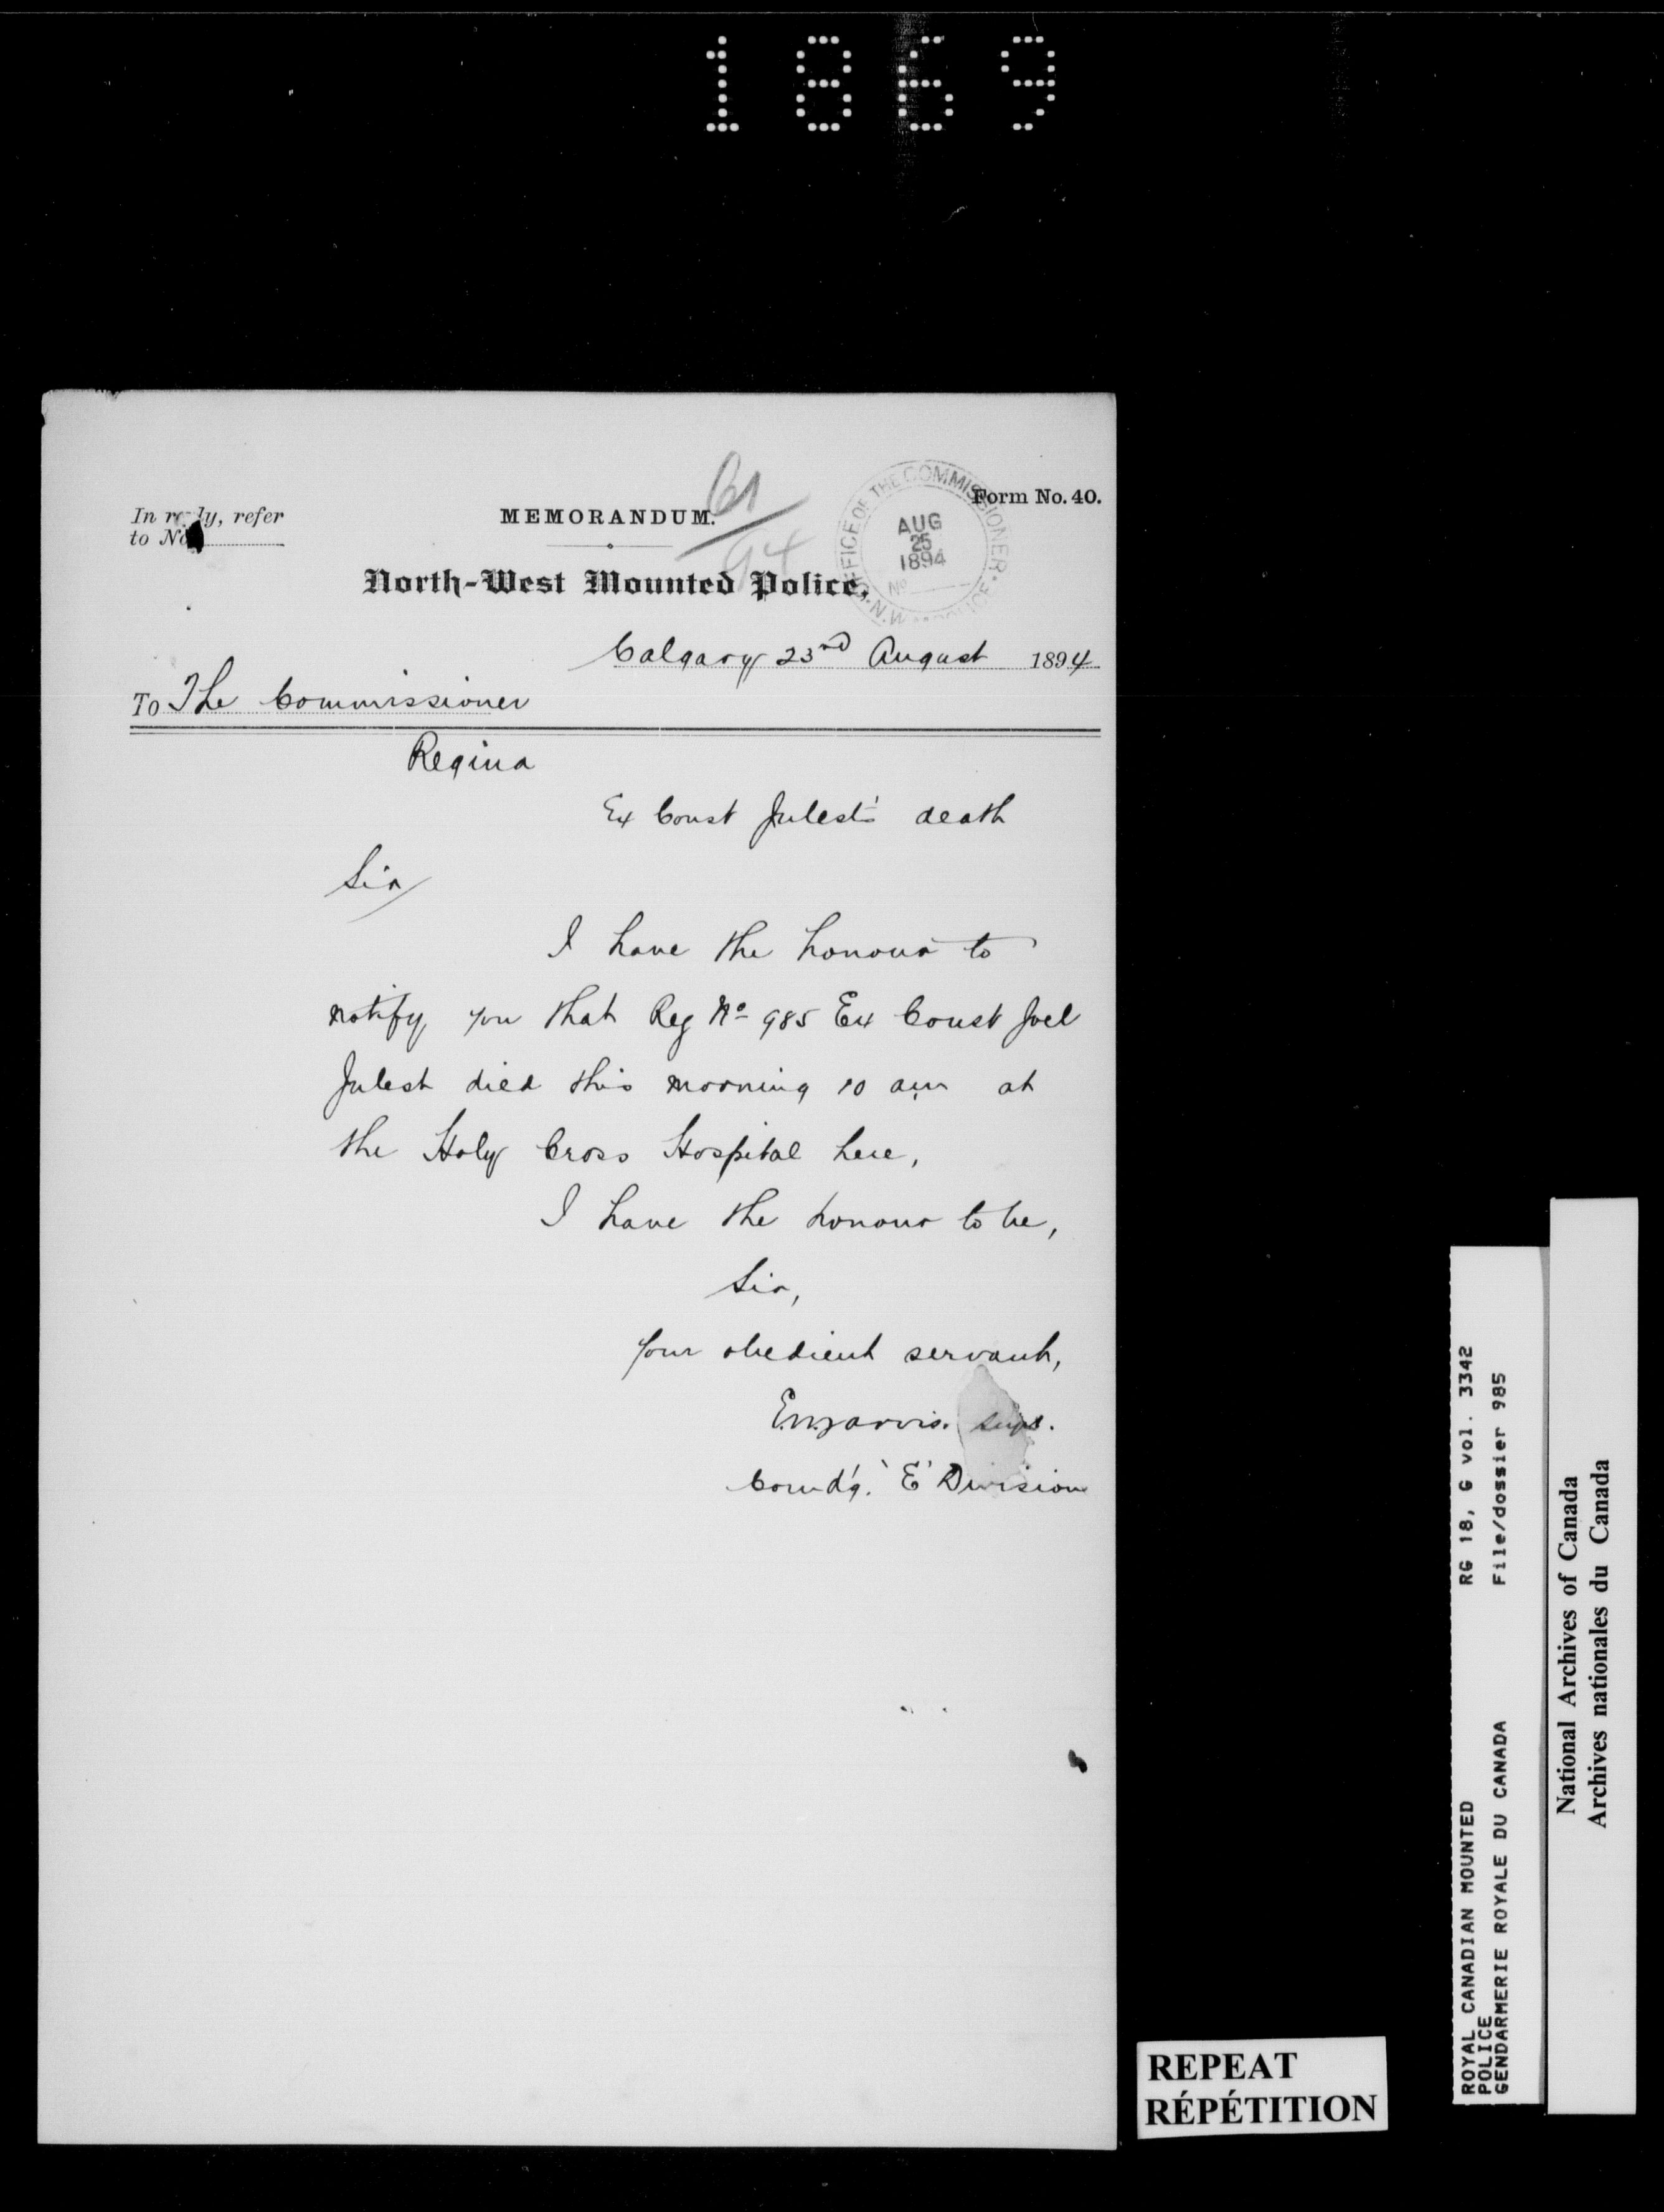 1869
61
94
Form No. 40.
In reply, refer
to No
MEMORANDUM.
OFFICE OF THE COMMISSIONER
AUG
25
1894
No
North-West Mounted Police,
Calgary 23rd August 1894
To The Commissioner
Regina
Ex Const Julest's death
Sir
I have the honour to
notify you that Reg No 985 Ex Const Joel
Julest died this morning 10 am at
the Holy Cross Hospital here,
I have the honour to be,
Sir,
Your obedient servant,
Jarvis. Supt.
Comd'g. 'E' Division
REPEAT
RÉPÉTITION
ROYAL CANADIAN MOUNTED
POLICE
GENDARMERIE ROYALE DU CANADA
RG 18, G vol. 3342
File/dossier 985
National Archives of Canada
Archives nationales du Canada